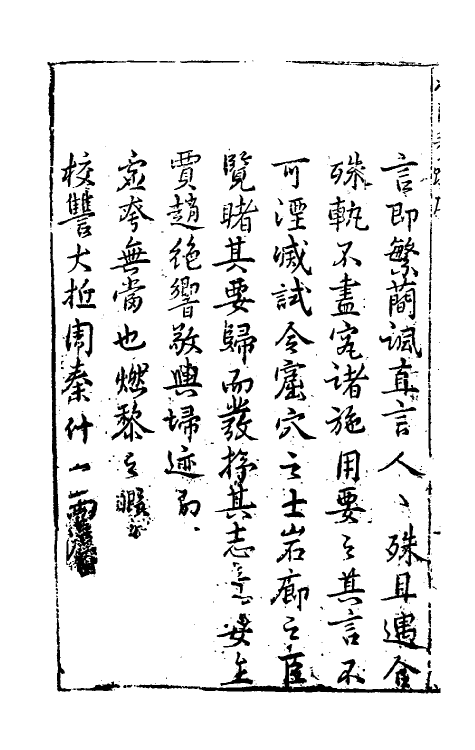 言即繁蕳諷直言人〻殊且遇舍
殊軌不盡宻諸施用要之其言不
可湮滅試令窟穴之士岩廊之臣
覽睹其要歸而發抒其志意安在
賈趙絶響敬輿埽迹哉
空夸無當也燃黎之暇
校讐大抵周秦什一兩漢